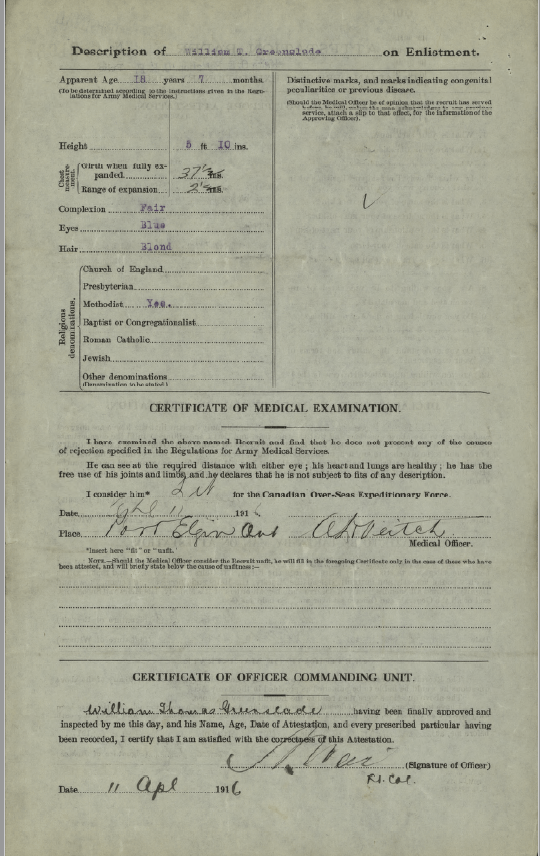 Description of William T. Greenslade on Enlistment.
Apparent Age 18 years 7 months.
(To be determined according to the instructions given in the Regulations for Army Medical Services.)
Height 5 ft 10 ins.
Chest measurement.
Girth when fully expanded 37½ ins.
Range of expansion 2½ ins.
Complexion Fair
Eyes Blue
Hair Blond
Religious denominations.
Church of England
Presbyterian
Methodist Yes.
Baptist or Congregationalist
Roman Catholic
Jewish
Other denominations
(Denomination to be stated.)
Distinctive marks, and marks indicating congenital
peculiarities or previous disease.
(Should the Medical Officer be of opinion that the recruit has served
before, he will,
service, attach a slip to that effect, for the information of the
Approving Officer).
CERTIFICATE OF MEDICAL EXAMINATION.
I have examined the above-named Recruit and find that he does not present any of the causes
of rejection specified in the Regulations for Army Medical Services.
He can see at the required distance with either eye; his heart and lungs are healthy; he has the
free use of his joints and limbs, and he declares that he is not subject to fits of any description.
I consider him* fit for the Canadian Over-Seas Expeditionary Force.
Date 11 191
Place Port Elgin Ont
Medical Officer.
*Insert here "fit" or "unfit."
NOTE.—Should the Medical Officer consider the Recruit unfit, he will fill in the foregoing Certificate only in the case of those who have
been attested, and will briefly state below the cause of unfitness:—
CERTIFICATE OF OFFICER COMMANDING UNIT.
William Thomas Greenslade having been finally approved and
inspected by me this day, and his Name, Age, Date of Attestation, and every prescribed particular having
been recorded, I certify that I am satisfied with the correctness of this Attestation.
(Signature of Officer)
Lt. Col.
Date 11 Apl 1916